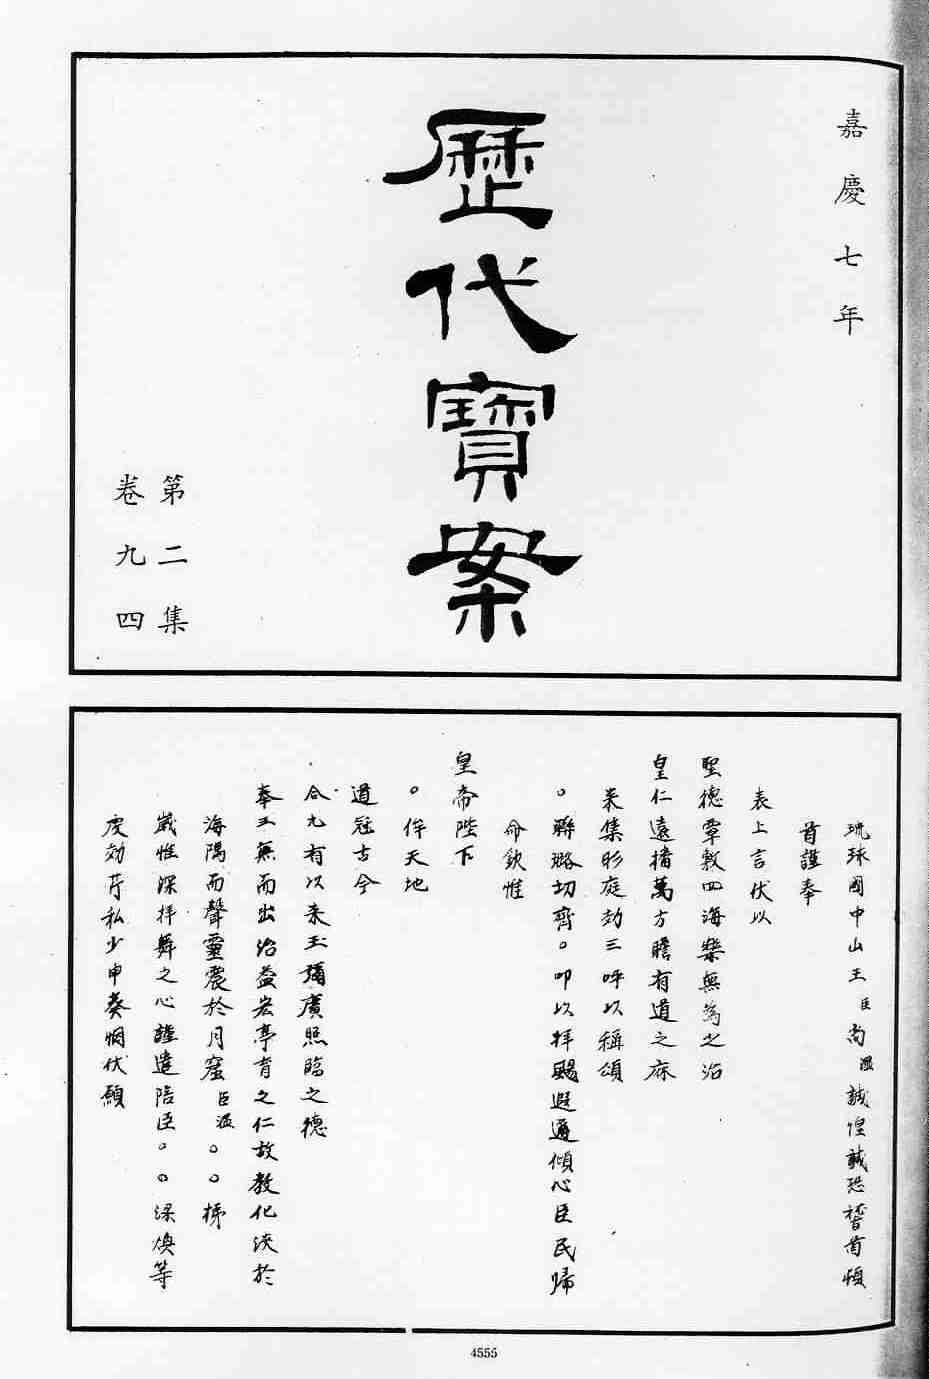 嘉慶七年
歷代寶案
第二集
卷九四
琉球國中山王臣尚溫誠惶誠恐稽首頓
首謹奉
表上言伏以
聖德覃敷四海樂無為之治
皇仁遠播萬方瞻有道之庥
萊集彤庭効三呼以稱頌
。聯璐切齊。叩以拜颺遐邇傾心臣民歸
命欽惟
皇帝陛下
。侔天地
道冠古今
合九有以來王彌廣照臨之德
奉三無而出治益宏亭育之仁故教化浹於
海隅而聲靈震於月窟臣溫。。梯
歲惟深拜舞之心謹遣陪臣。。梁煥等
虔効芹私少申葵悃伏願
4555